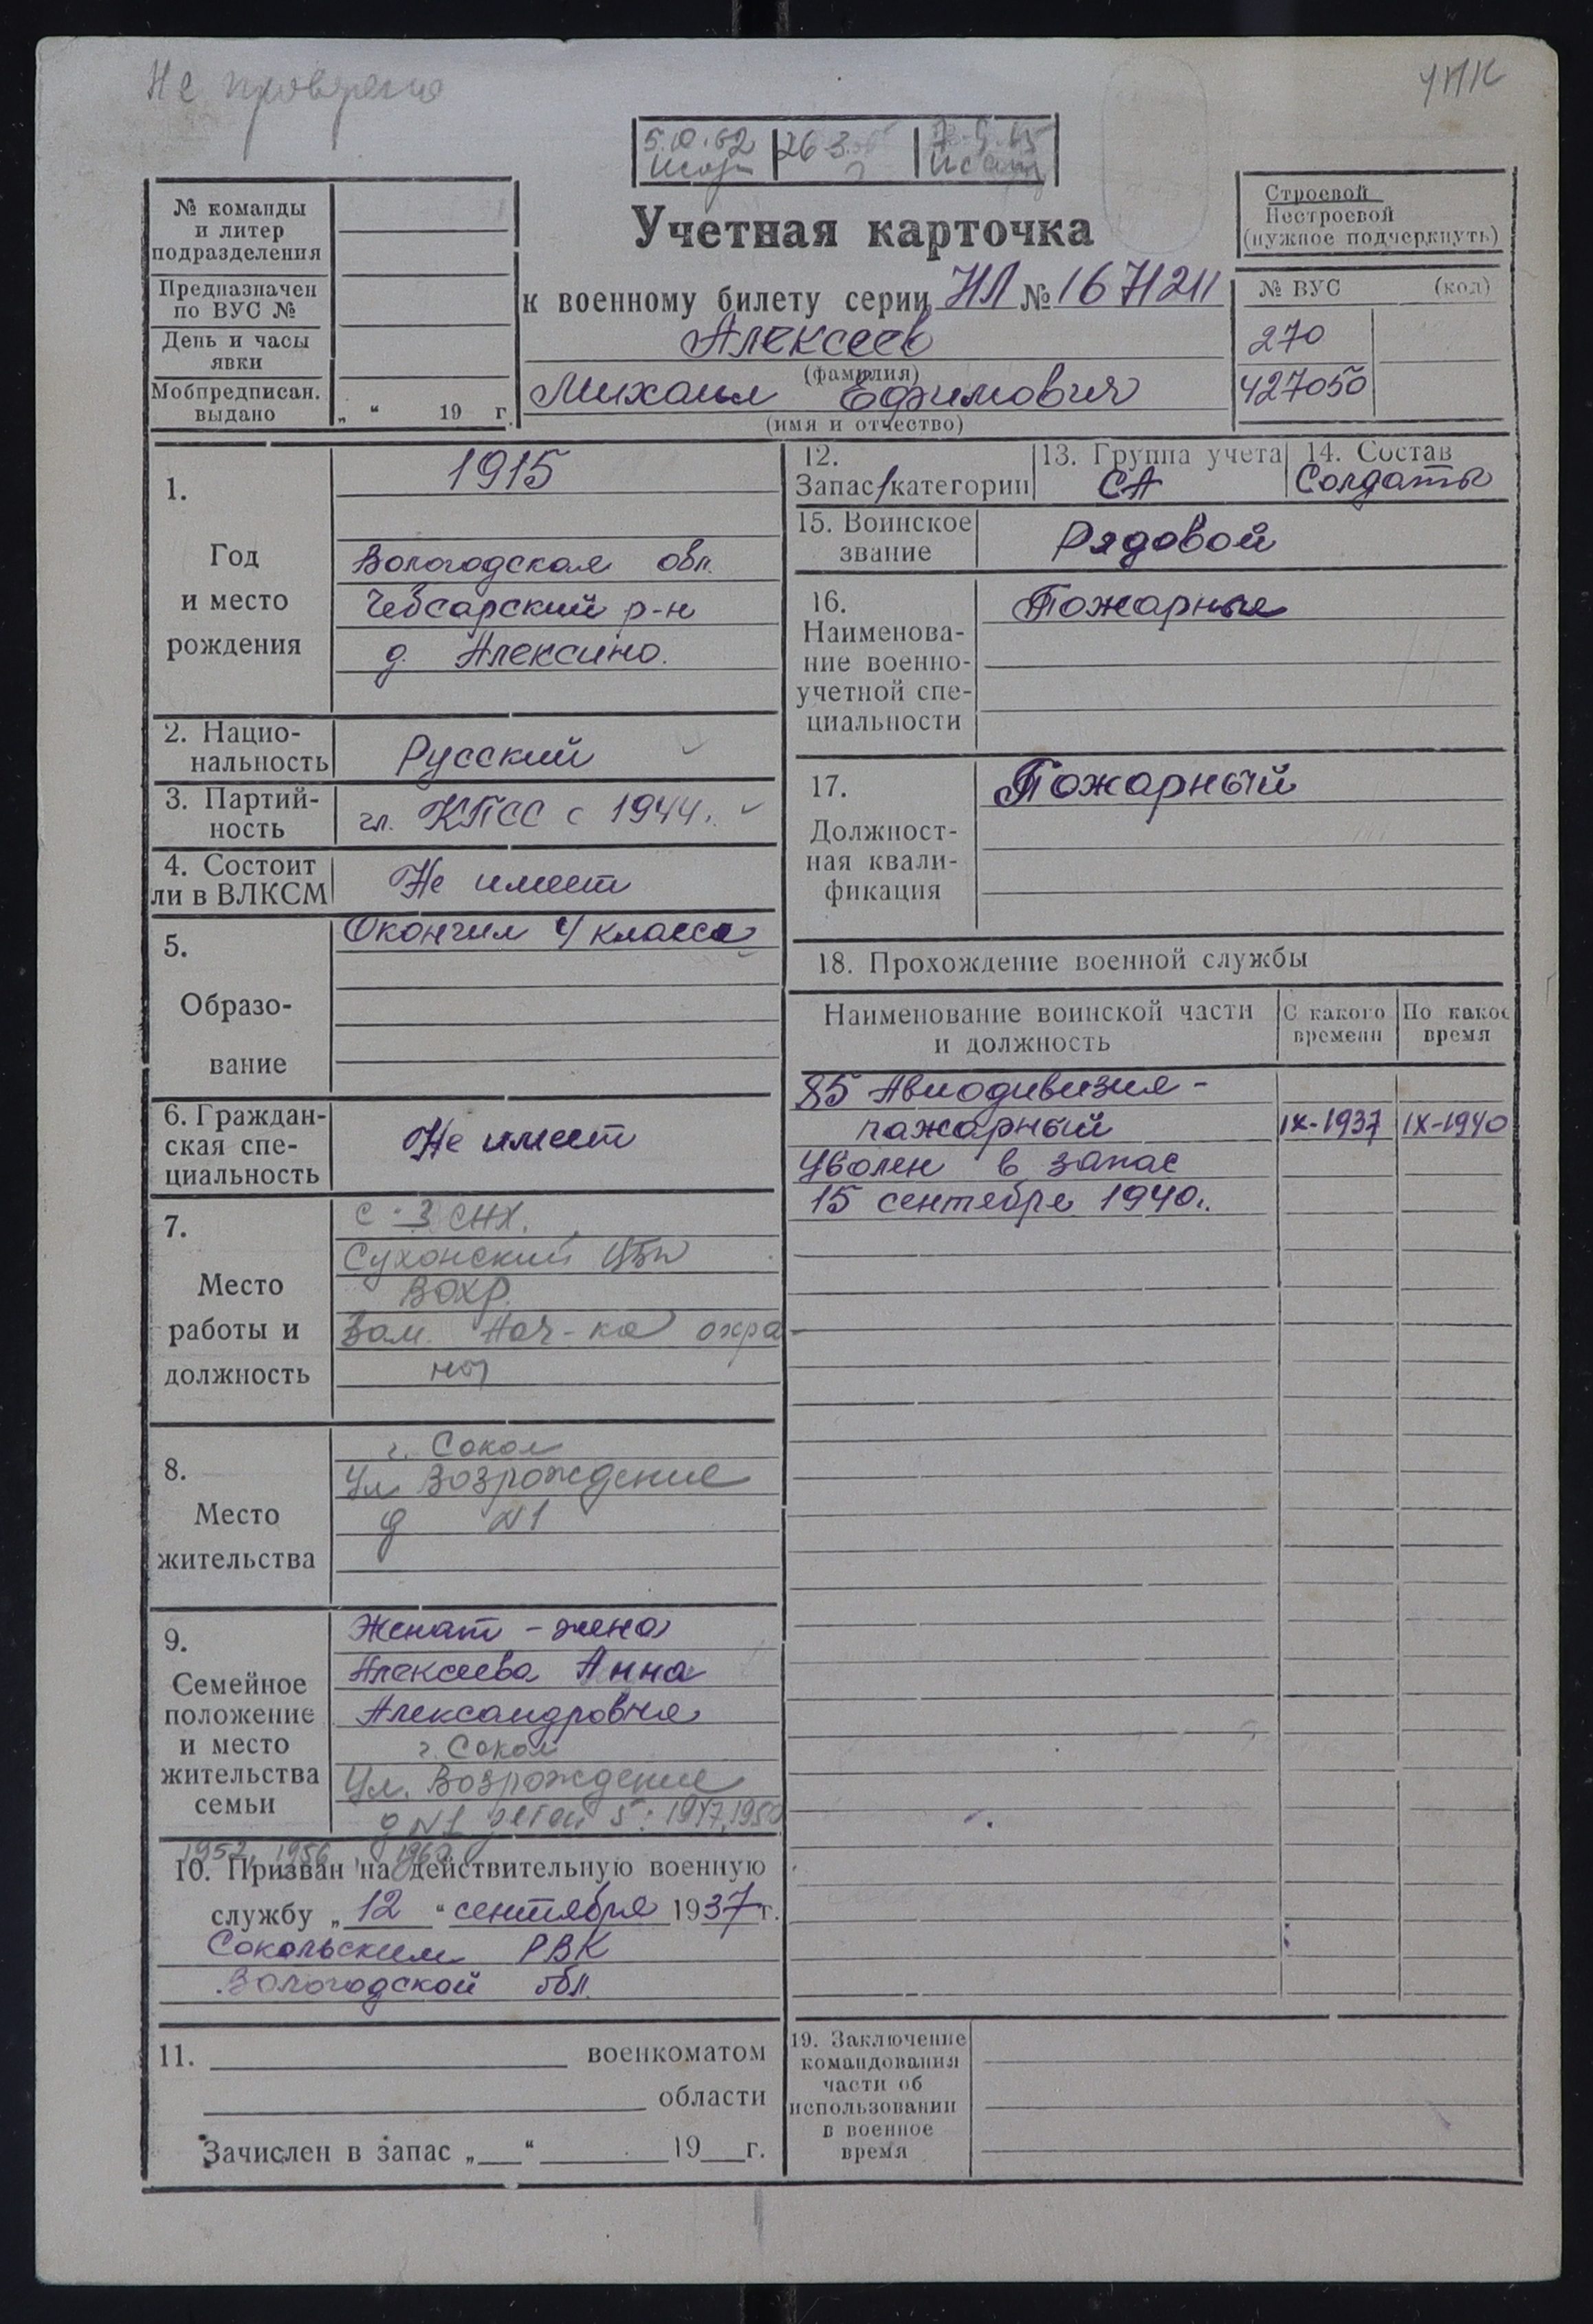 Не проверено
УПК
5.10.62
26 3
№ команды
и литер
подразделения
Предназначен
по ВУС №
День и часы
явки
Мобпредписан.
выдано
„ “ 19 г.
Учетная карточка
к военному билету серии НЛ № 1671211
Алексеев
(фамилия)
Михаил Ефимович
(имя и отчество)
Строевой
Нестроевой
(нужное подчеркнуть)
№ ВУС (код)
270
427050
1.
Год
и место
рождения
1915
Вологодская обл.
Чебсарский р-н
д. Алексино.
2. Нацио-
нальность
Русский
3. Партий-
ность
чл. КПСС с 1944г.
4. Состоит
ли в ВЛКСМ
Не имеет
5.
Образо-
вание
Окончил 4 класса
6. Граждан-
ская спе-
циальность
Не имеет
7.
Место
работы и
должность
С-З СНХ.
Сухонский ЦБК
ВОХР.
Зам. Нач-ка охра-
ны
8.
Место
жительства
г. Сокол
Ул Возрождение
д №1
9.
Семейное
положение
и место
жительства
семьи
Женат - жена
Алексеева Анна
Александровна
г. Сокол
Ул. Возрождение
д №1 детей 5: 1947, 1950
1952, 1956, 1960
10. Призван на действительную военную
службу „ 12 “ сентября 1937 г.
Сокольским РВК
Вологодской обл.
11. военкоматом
области
Зачислен в запас „ “ 19 г.
12.
Запас 1 категории
13. Группа учета
СА
14. Состав
Солдаты
15. Воинское
звание
Рядовой
16.
Наименова-
ние военно-
учетной спе-
циальности
Пожарные
17.
Должност-
ная квали-
фикация
Пожарный
18. Прохождение военной службы
Наименование воинской части
и должность
С какого
времени
По какое
время
85 Авиодивизия -
пажарный IX-1937 IX-1940
Уволен в запас
15 сентября 1940г.
19. Заключение
командования
части об
использовании
в военное
время